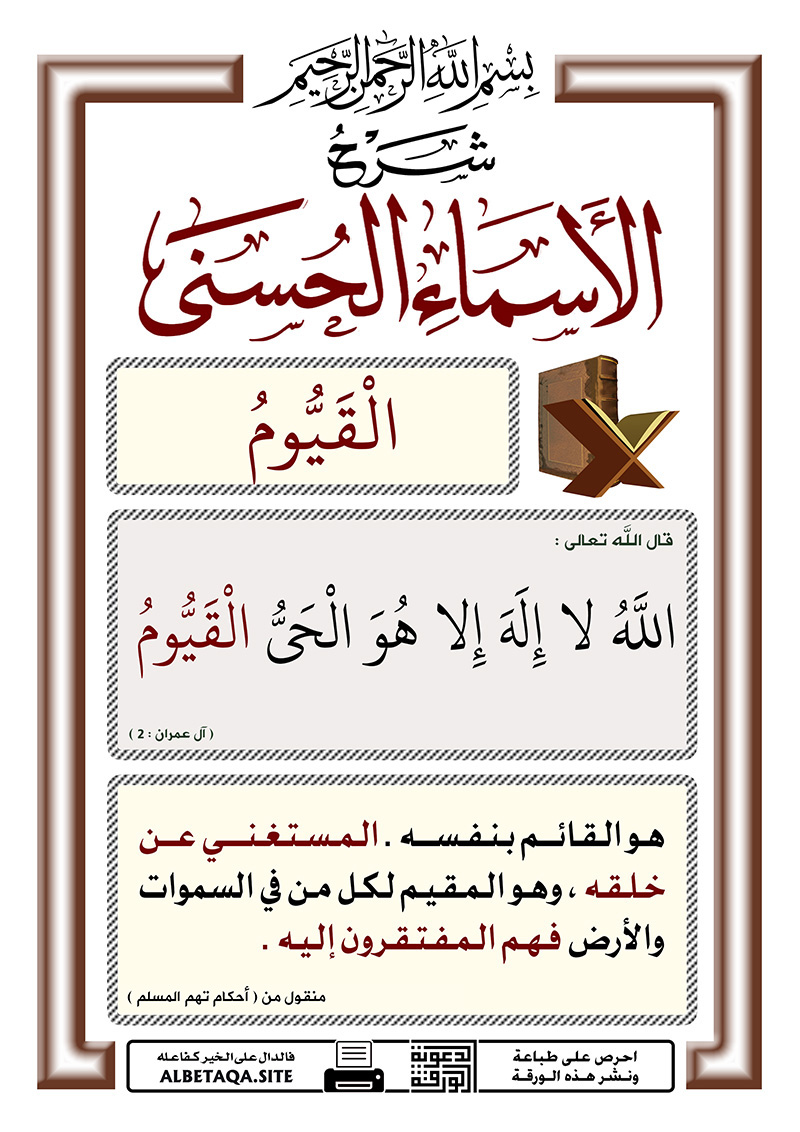 بِسْمِ اللَّهِ الرَّحْمَنِ الرَّحِيمِ
شَرْحُ
الأَسْمَاءِ الحُسْنَى
الْقَيُّومُ
قال اللَّه تعالى :
اللَّهُ لا إِلَهَ إِلا هُوَ الْحَيُّ الْقَيُّومُ
( آل عمران : 2 )
هو القائم بنفسه . المستغني عن
خلقه ، وهو المقيم لكل من في السموات
والأرض فهم المفتقرون إليه .
منقول من ( أحكام تهم المسلم )
احرص على طباعة
ونشر هذه الورقة
الدعوية
الورقة
فالدال على الخير كفاعله
ALBETAQA.SITE